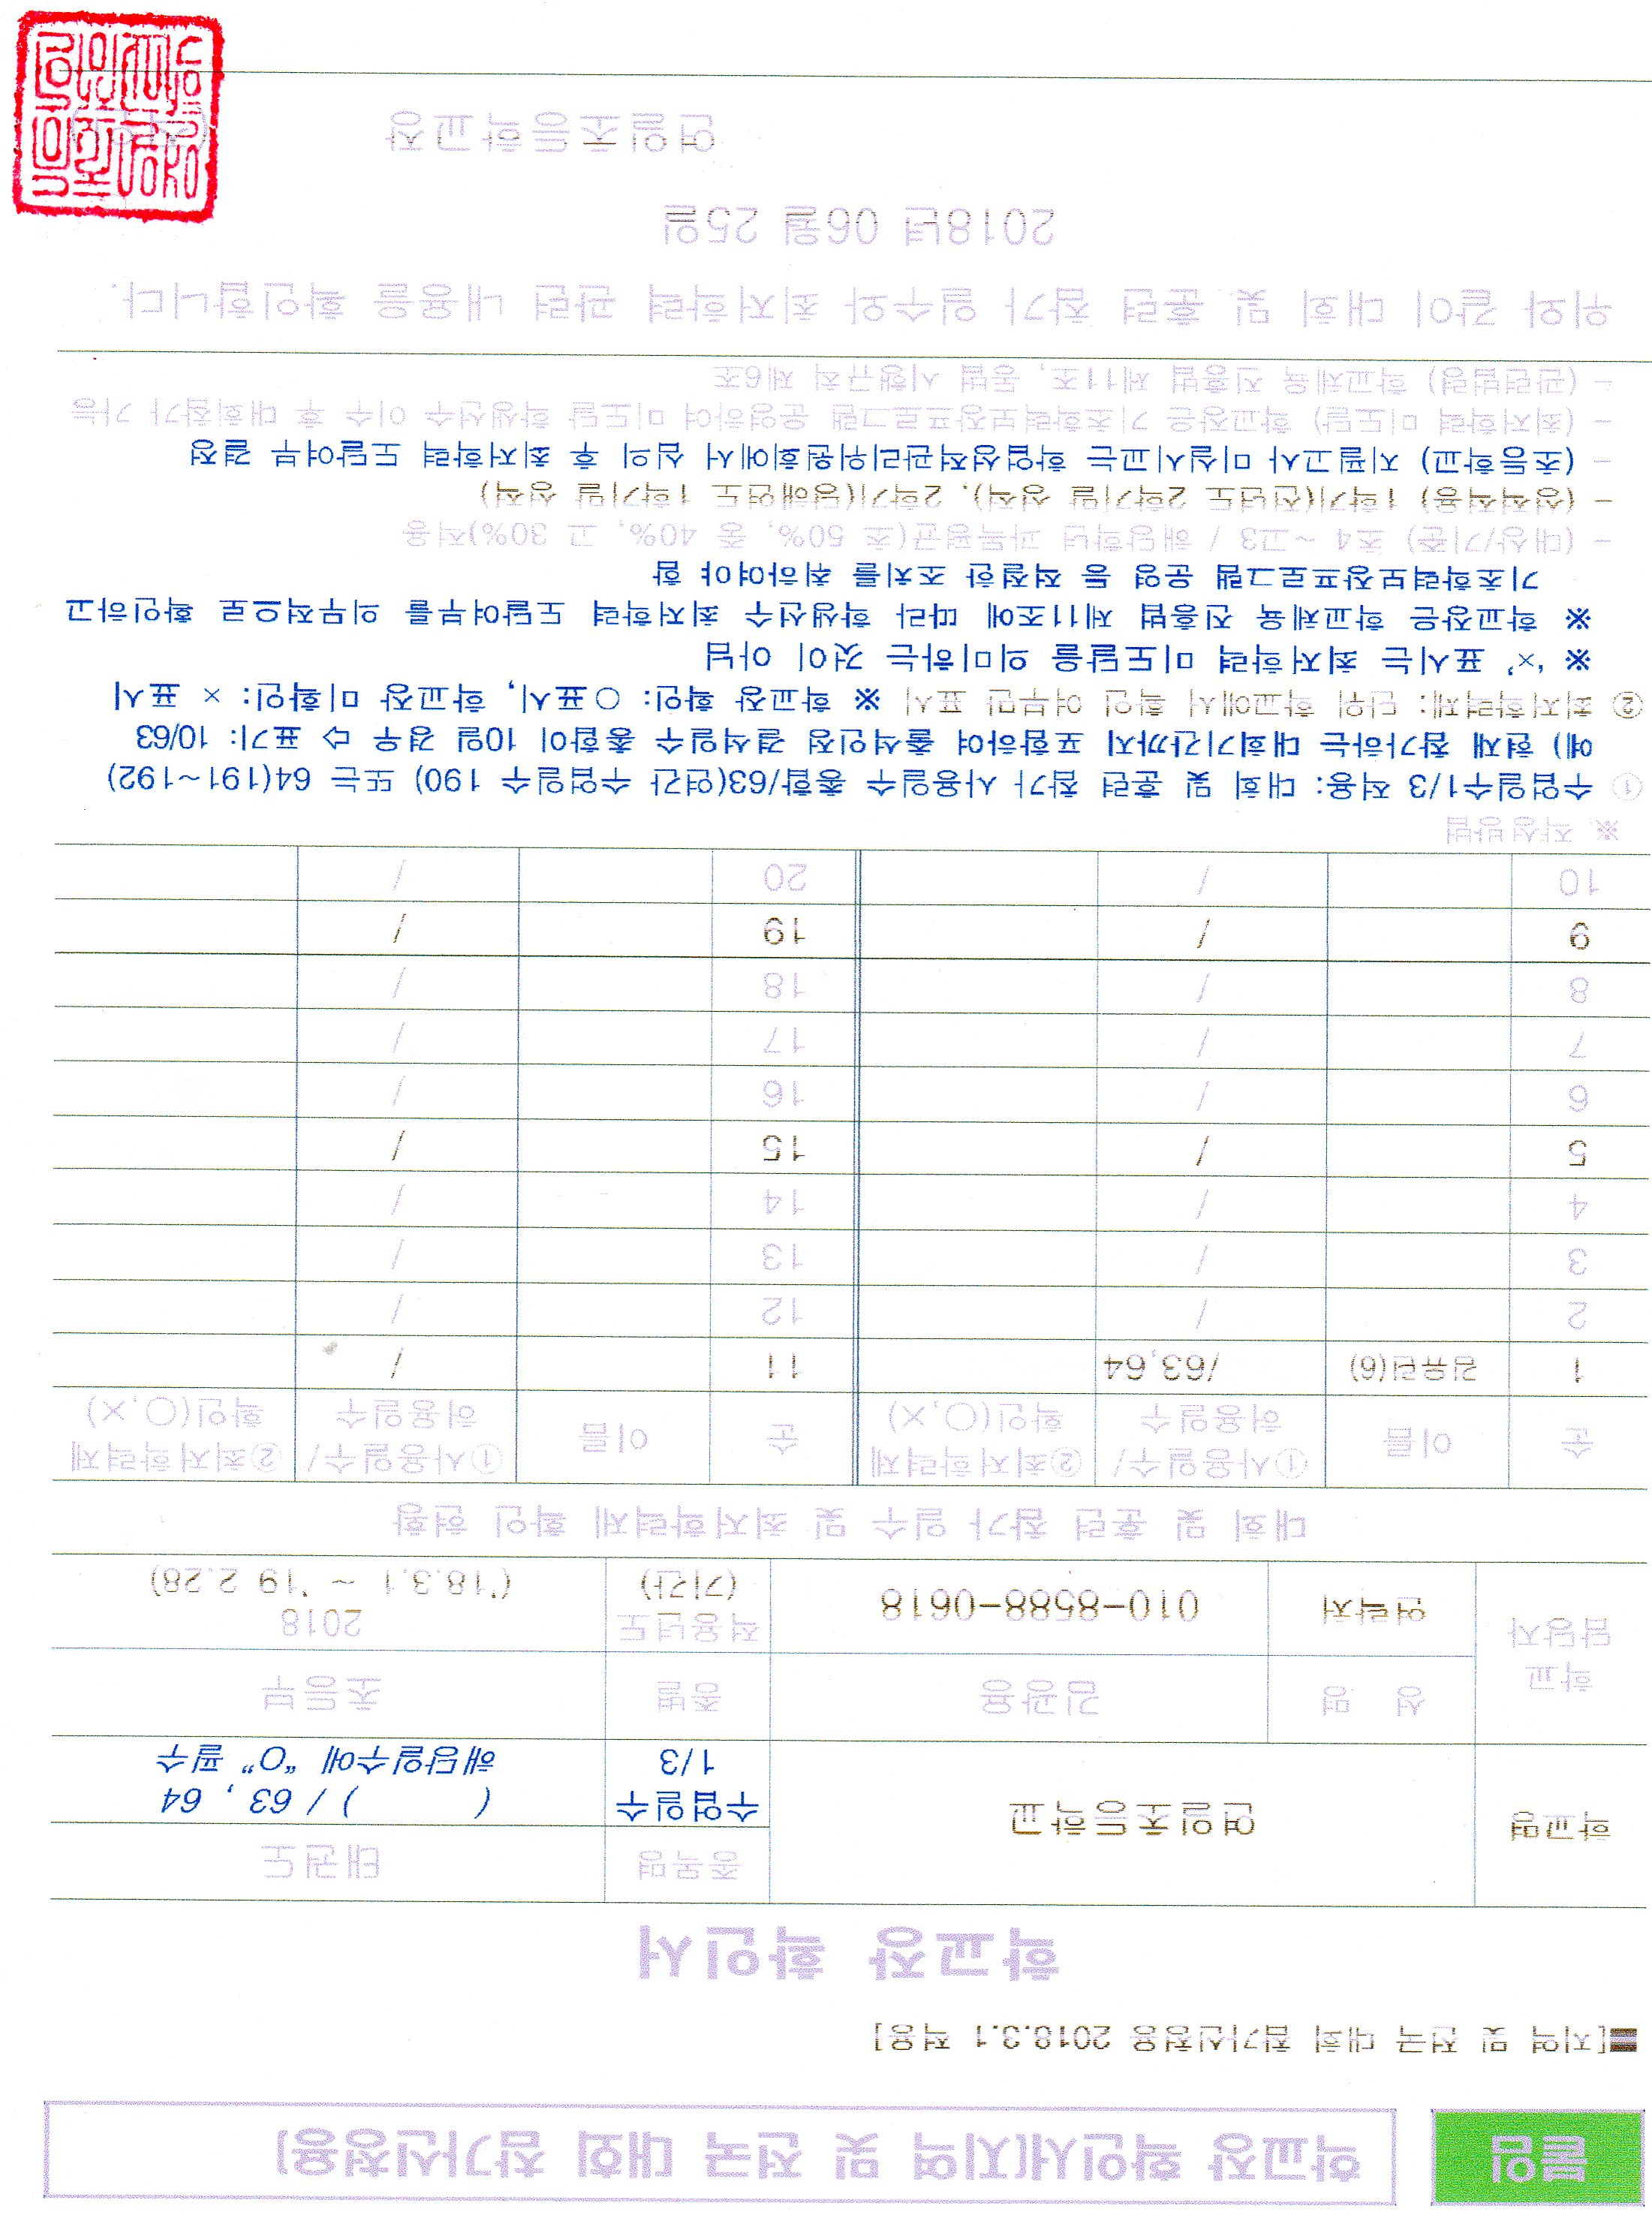 붙임 학교장 확인서[지역 및 전국 대회 참가신청용]
■[지역 및 전국 대회 참가신청용 2018.3.1 적용]
학교장 확인서
학교명 연일초등학교 종목명 태권도
수업일수 1/3 ( ) / 63 , 64
해당일수에 "O" 필수
학교 담당자 성 명 김광용 종별 초등부
연락처 010-8588-0618 적용년도 (기간) 2018
('18.3.1 ~ '19 2.28)
대회 및 훈련 참가 일수 및 최저학력제 확인 현황
순 이름 ①사용일수/허용일수 ②최저학력제 확인(○,×) 순 이름 ①사용일수/허용일수 ②최저학력제 확인(○,×)
1 김유민(6) /63,64 11 /
2 / 12 /
3 / 13 /
4 / 14 /
5 / 15 /
6 / 16 /
7 / 17 /
8 / 18 /
9 / 19 /
10 / 20 /
※ 작성방법
① 수업일수1/3 적용: 대회 및 훈련 참가 사용일수 총합/63(연간 수업일수 190) 또는 64(191~192)
예) 현재 참가하는 대회기간까지 포함하여 출석인정 결석일수 총합이 10일 경우 ⇨ 표기: 10/63
② 최저학력제: 단위 학교에서 확인 여부만 표시 ※ 학교장 확인: ○표시, 학교장 미확인: × 표시
※ '×' 표시는 최저학력 미도달을 의미하는 것이 아님
※ 학교장은 학교체육 진흥법 제11조에 따라 학생선수 최저학력 도달여부를 의무적으로 확인하고
기초학력보장프로그램 운영 등 적절한 조치를 취하여야 함
- (대상/기준) 초4 ~고3 / 해당학년 과목평균(초 50%, 중 40%, 고 30%)적용
- (성적적용) 1학기(전년도 2학기말 성적), 2학기(당해연도 1학기말 성적)
- (초등학교) 지필고사 미실시교는 학업성적관리위원회에서 심의 후 최저학력 도달여부 결정
- (최저학력 미도달) 학교장은 기초학력보장프로그램 운영하여 미도달 학생선수 이수 후 대회참가 가능
- (관련법령) 학교체육 진흥법 제11조, 동법 시행규칙 제6조
위와 같이 대회 및 훈련 참가 일수와 최저학력 관련 내용을 확인합니다.
2018년 06월 25일
연일초등학교장